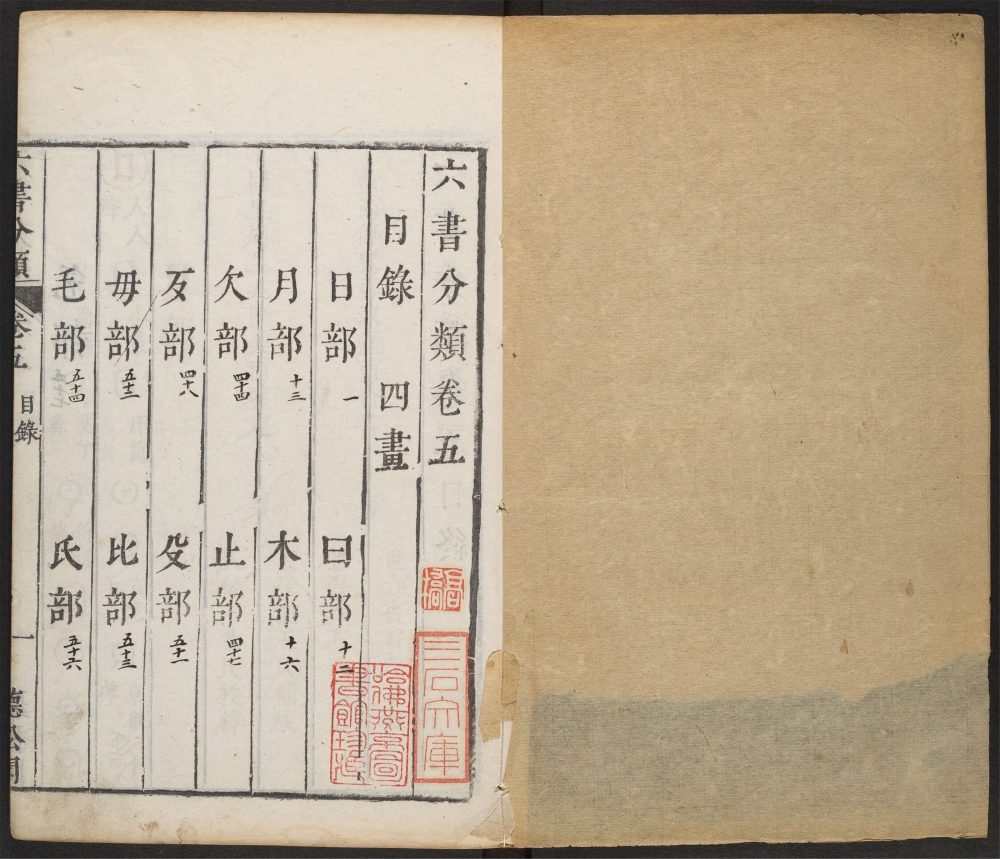 六書分類卷五
目錄 四畫
日部 一 曰部 十二
月部 十三 木部 十六
欠部 四十四 止部 四十七
歹部 四十八 殳部 五十一
毋部 五十三 比部 五十三
毛部 五十四 氏部 五十六
六書分類 卷五 目錄 一
三石文庫
哈佛燕京圖書館珍藏